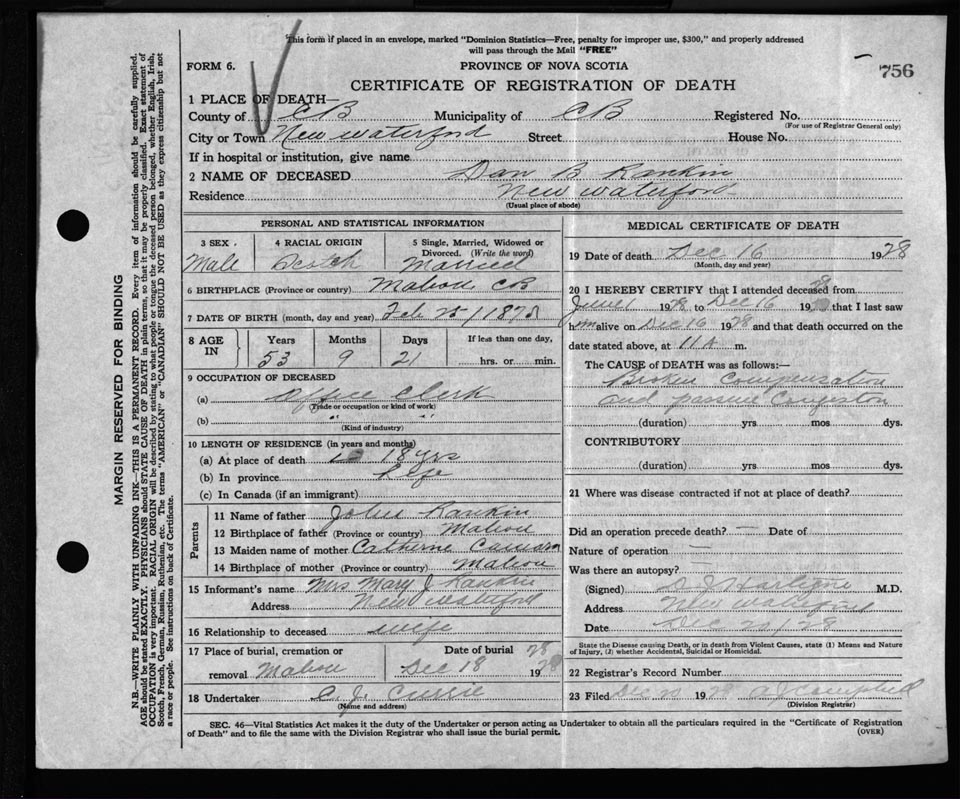 This form if placed in an envelope, marked "Dominion Statistics—Free, penalty for improper use, $300," and properly addressed
will pass through the Mail "FREE"
FORM 6.
PROVINCE OF NOVA SCOTIA
756
CERTIFICATE OF REGISTRATION OF DEATH
1 PLACE OF DEATH—
County of CB Municipality of CB Registered No.
(For use of Registrar General only)
City or Town New Waterford Street House No.
If in hospital or institution, give name
2 NAME OF DECEASED Dan B Rankin
Residence New Waterford
(Usual place of abode)
PERSONAL AND STATISTICAL INFORMATION
3 SEX 4 RACIAL ORIGIN 5 Single, Married, Widowed or
Divorced. (Write the word)
Male Scotch Married
6 BIRTHPLACE (Province or country) Mabou CB
7 DATE OF BIRTH (month, day and year) Feb 25/1875
8 AGE IN Years Months Days If less than one day,
53 9 21 hrs. or min.
9 OCCUPATION OF DECEASED
(a) Office Clerk
(Trade or occupation or kind of work)
(b) " "
(Kind of industry)
10 LENGTH OF RESIDENCE (in years and months)
(a) At place of death 18 yrs
(b) In province Life
(c) In Canada (if an immigrant)
Parents
11 Name of father John Rankin
12 Birthplace of father (Province or country) Mabou
13 Maiden name of mother Catherine Cameron
14 Birthplace of mother (Province or country) Mabou
15 Informant's name Mrs Mary J Rankin
Address New Waterford
16 Relationship to deceased wife
17 Place of burial, cremation or Date of burial
removal Mabou Dec 18 1928
18 Undertaker C. J. Currie
(Name and address)
MEDICAL CERTIFICATE OF DEATH
19 Date of death Dec 16 1928
(Month, day and year)
20 I HEREBY CERTIFY that I attended deceased from
June 1 1928 to Dec 16 1928 that I last saw
him alive on Dec 16 1928 and that death occurred on the
date stated above, at 11 A m.
The CAUSE of DEATH was as follows:—
Broken Compensation
and passive Congestion
(duration) yrs mos dys.
CONTRIBUTORY
(duration) yrs. mos. dys.
21 Where was disease contracted if not at place of death?
Did an operation precede death? — Date of
Nature of operation —
Was there an autopsy? —
(Signed) M.D.
Address New Waterford
Date Dec 20/28
State the Disease causing Death, or in death from Violent Causes, state (1) Means and Nature
of Injury, (2) whether Accidental, Suicidal or Homicidal.
22 Registrar's Record Number
23 Filed Dec 20 1928 A J Campbell
(Division Registrar)
SEC. 46—Vital Statistics Act makes it the duty of the Undertaker or person acting as Undertaker to obtain all the particulars required in the "Certificate of Registration
of Death" and to file the same with the Division Registrar who shall issue the burial permit. (OVER)
MARGIN RESERVED FOR BINDING
N.B.—WRITE PLAINLY WITH UNFADING INK—THIS IS A PERMANENT RECORD. Every item of information should be carefully supplied.
AGE should be stated EXACTLY. PHYSICIANS should STATE CAUSE OF DEATH in plain terms, so that it may be properly classified. Exact statement of
OCCUPATION is very important. RACIAL ORIGIN will be described by stating to what people or tongue the deceased person belonged, whether English, Irish,
Scotch, French, German, Russian, Ruthenian, etc. The terms "AMERICAN" or "CANADIAN" SHOULD NOT BE USED as they express citizenship but not
a race or people. See instructions on back of Certificate.